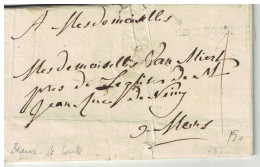 A Mesdemoiselles
Mesdemoiselles Van Miert
près de l'eglise de
Jean Rue de Nimy
a Mons
Braine le Comte